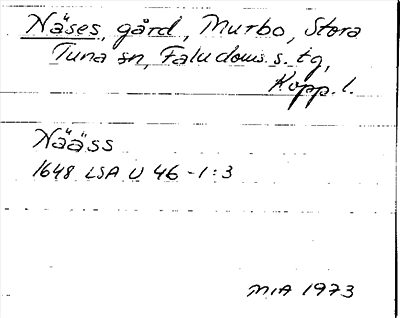 Näses, gård, Murbo, Stora
Tuna sn, Falu doms. s. tg,
Kopp. l.
Nääss
1648 LSA U 46 - 1:3
MIA 1973